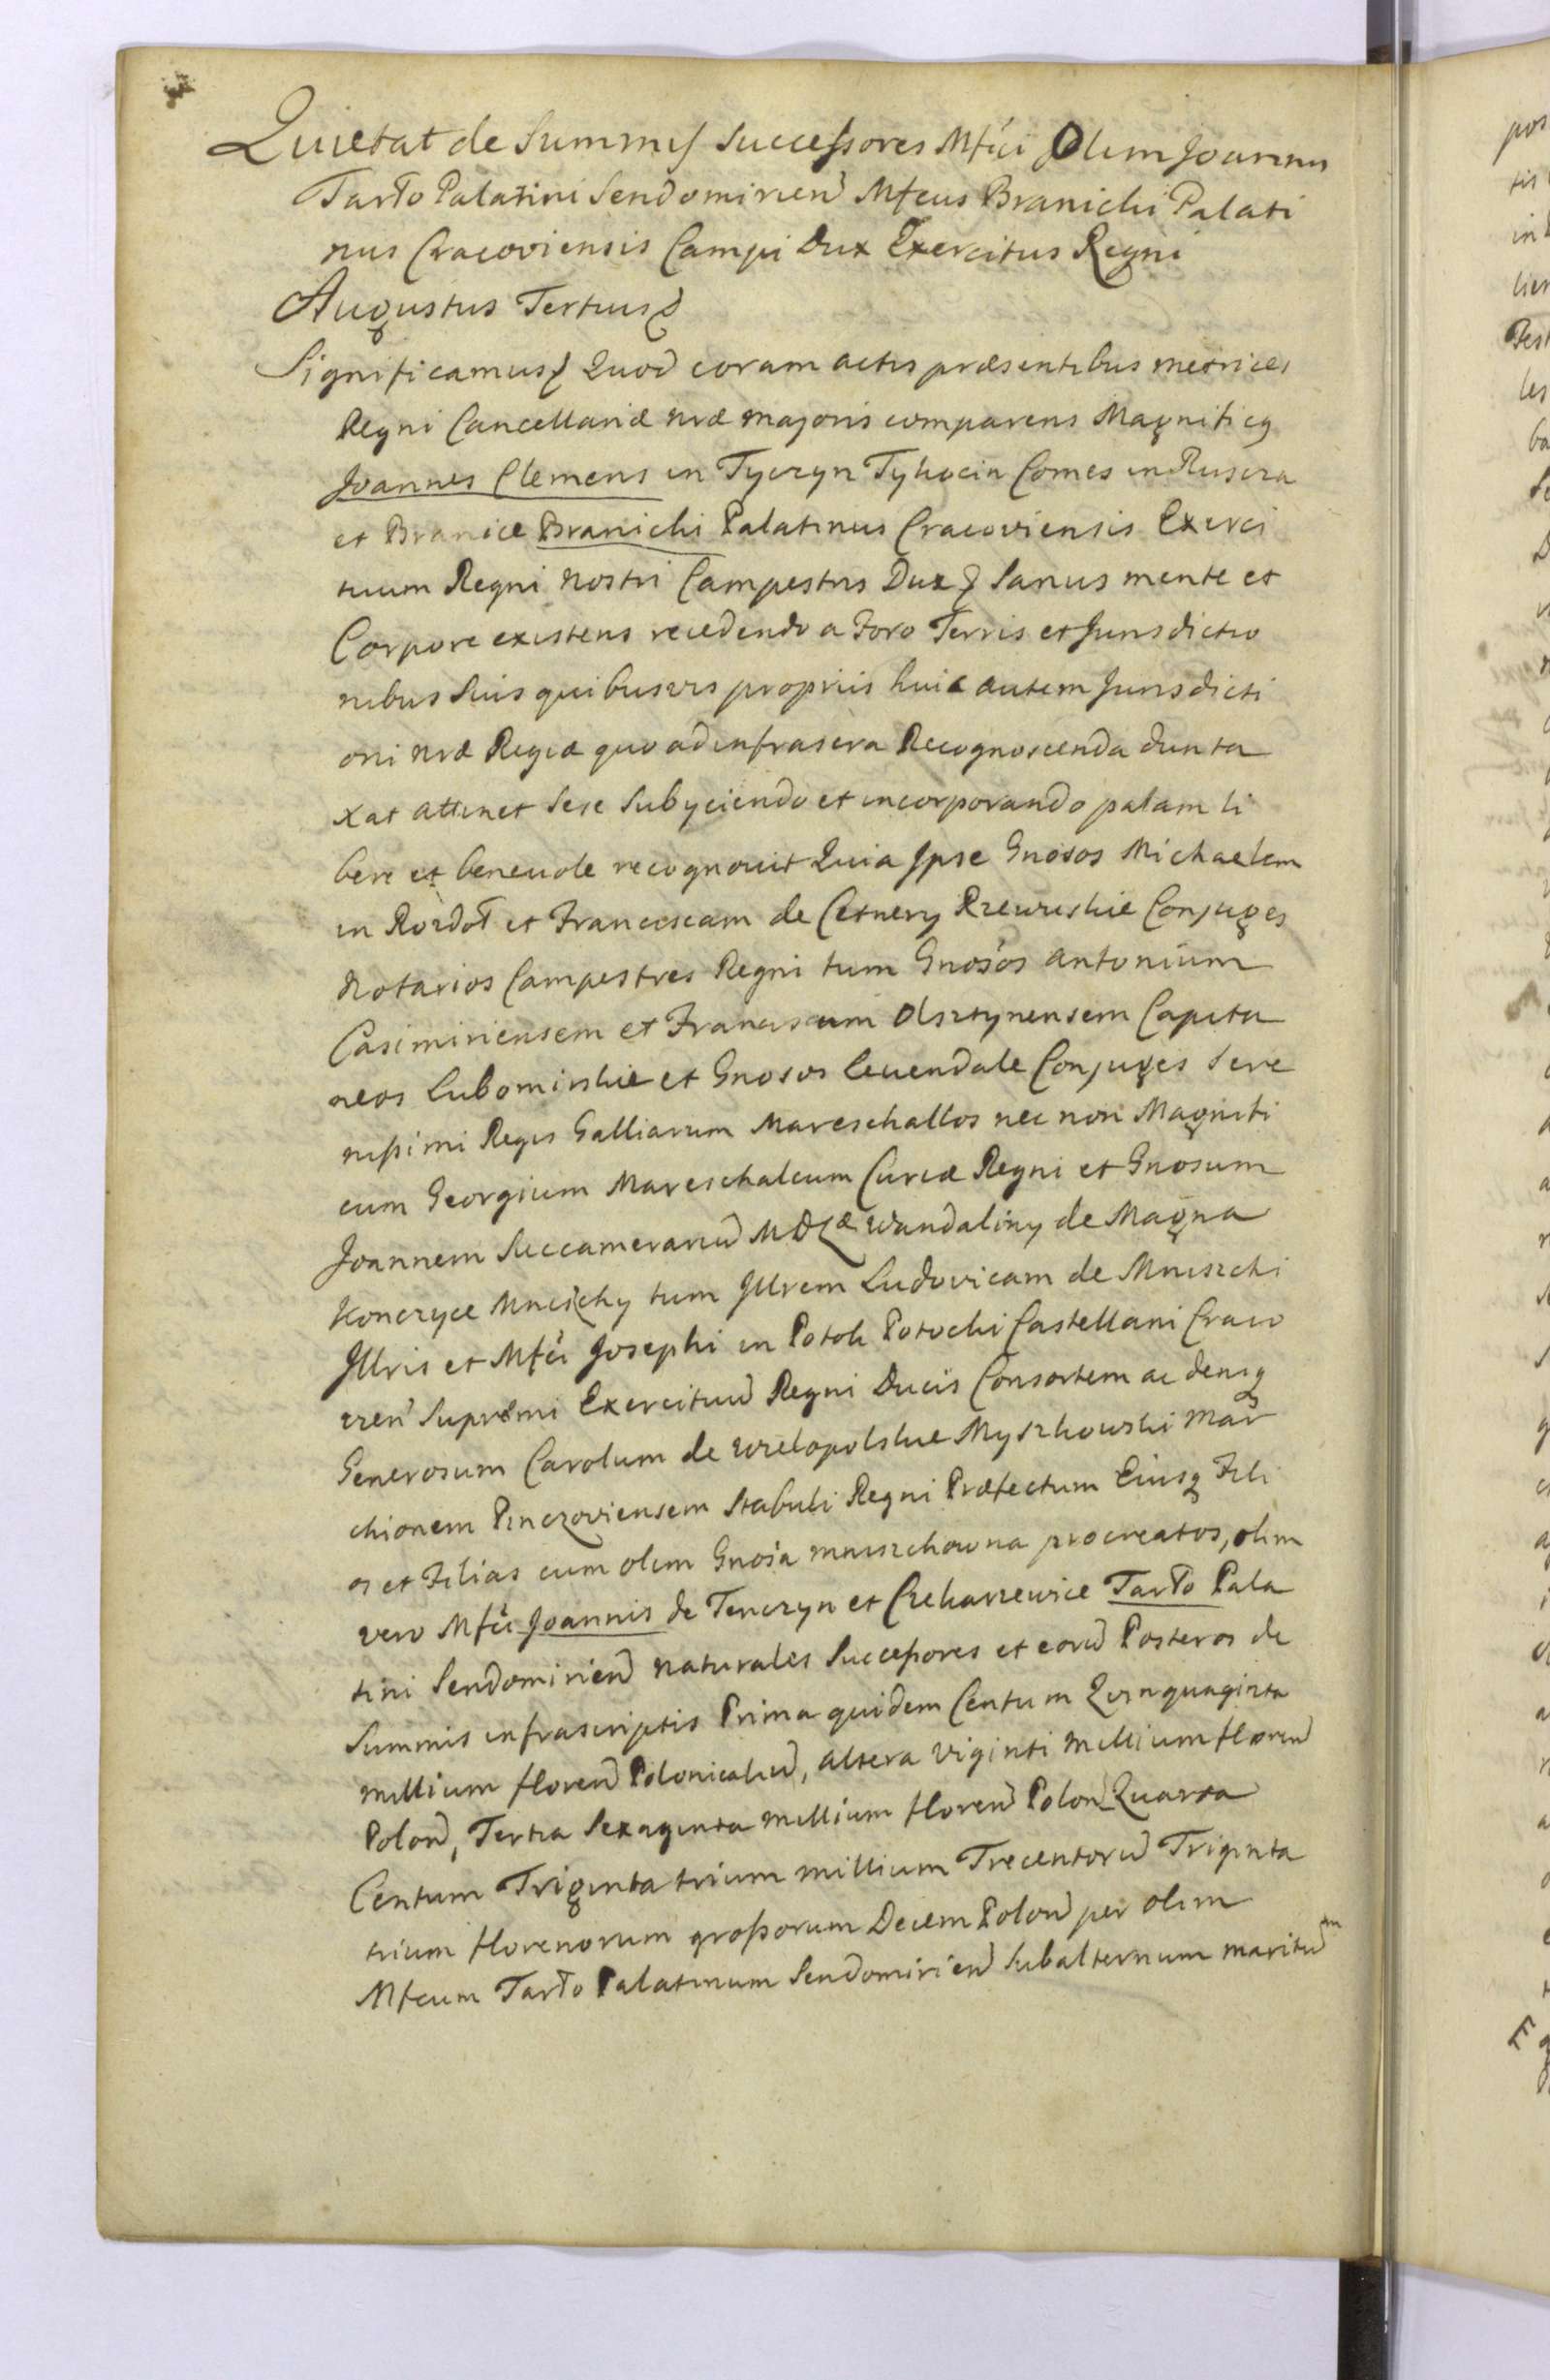 Quietat de Summis Successores Mfici Olim Joannis
Tarło Palatini Sendomirien Mfcus Branicki Palati
nus Cracoviensis Campi Dux Exercitus Regni
Augustus Tertius
Significamus Quod coram actis præsentibus metrices
Regni Cancellariæ nræ majoris comparens Magnificq
Joannes Clemens in Tyczyn Tykocin Comes in Ruscza
et Branice Branicki Palatinus Cracoviensis Exerci
tuum Regni nostri Campestris Dux Sanus mente et
Corpore existens recedendo a Foro Terris et Jurisdictio
nibus Suis quibusvis propriis huic autem Jurisdicti
oni nræ Regiæ quo ad infrascra Recognoscenda dunta
xat attinet Sese Subyciendo et incorporando palam li
bere et benevole recognovit Quia Ipse Gnosos Michaelem
in Rozdoł et Franciscam de Cetnery Rzewuskie Conjuges
Notarios Campestres Regni tum Gnosos Antonium
Casimiriensem et Franciscum Olsztynensem Capita
neos Lubomirskie et Gnosos Levendale Conjuges Sere
nissimi Regis Galliarum Mareschallos nec non Magnifi
cum Georgium Mareschalcum Curiæ Regni et Gnosum
Joannem Succamerariu MDLæ Wandaliny de Magna
Konczyce Mniszchy tum Jllrem Ludovicam de Mniszchi
Jllris et Mfci Josephi in Potok Potocki Castellani Craco
vien Supremi Exercituu Regni Ducis Consortem ac deniq
Generosum Carolum de Wielopolskie Myszkowski Mar
chionem Pinczoviensem Stabuli Regni Præfectum Eiusq Fili
os et Filias cum olim Gnosa Mniszchowna procreatos, olim
vero Mfci Joannis de Tenczyn et Czekarzewice Tarło Pala
tini Sendomirien naturales Successores et eoru Posteros de
Summis infrascriptis Prima quidem Centum Quinquaginta
millium floren Polonicaliu, altera Viginti millium floren
Polon, Tertia Sexaginta millium floren Polon Quarta
Centum Triginta trium millium Trecentoru Triginta
trium florenorum grossorum Decem Polon per olim
Mfcum Tarło Palatinum Sendomirien Subalternum maritum